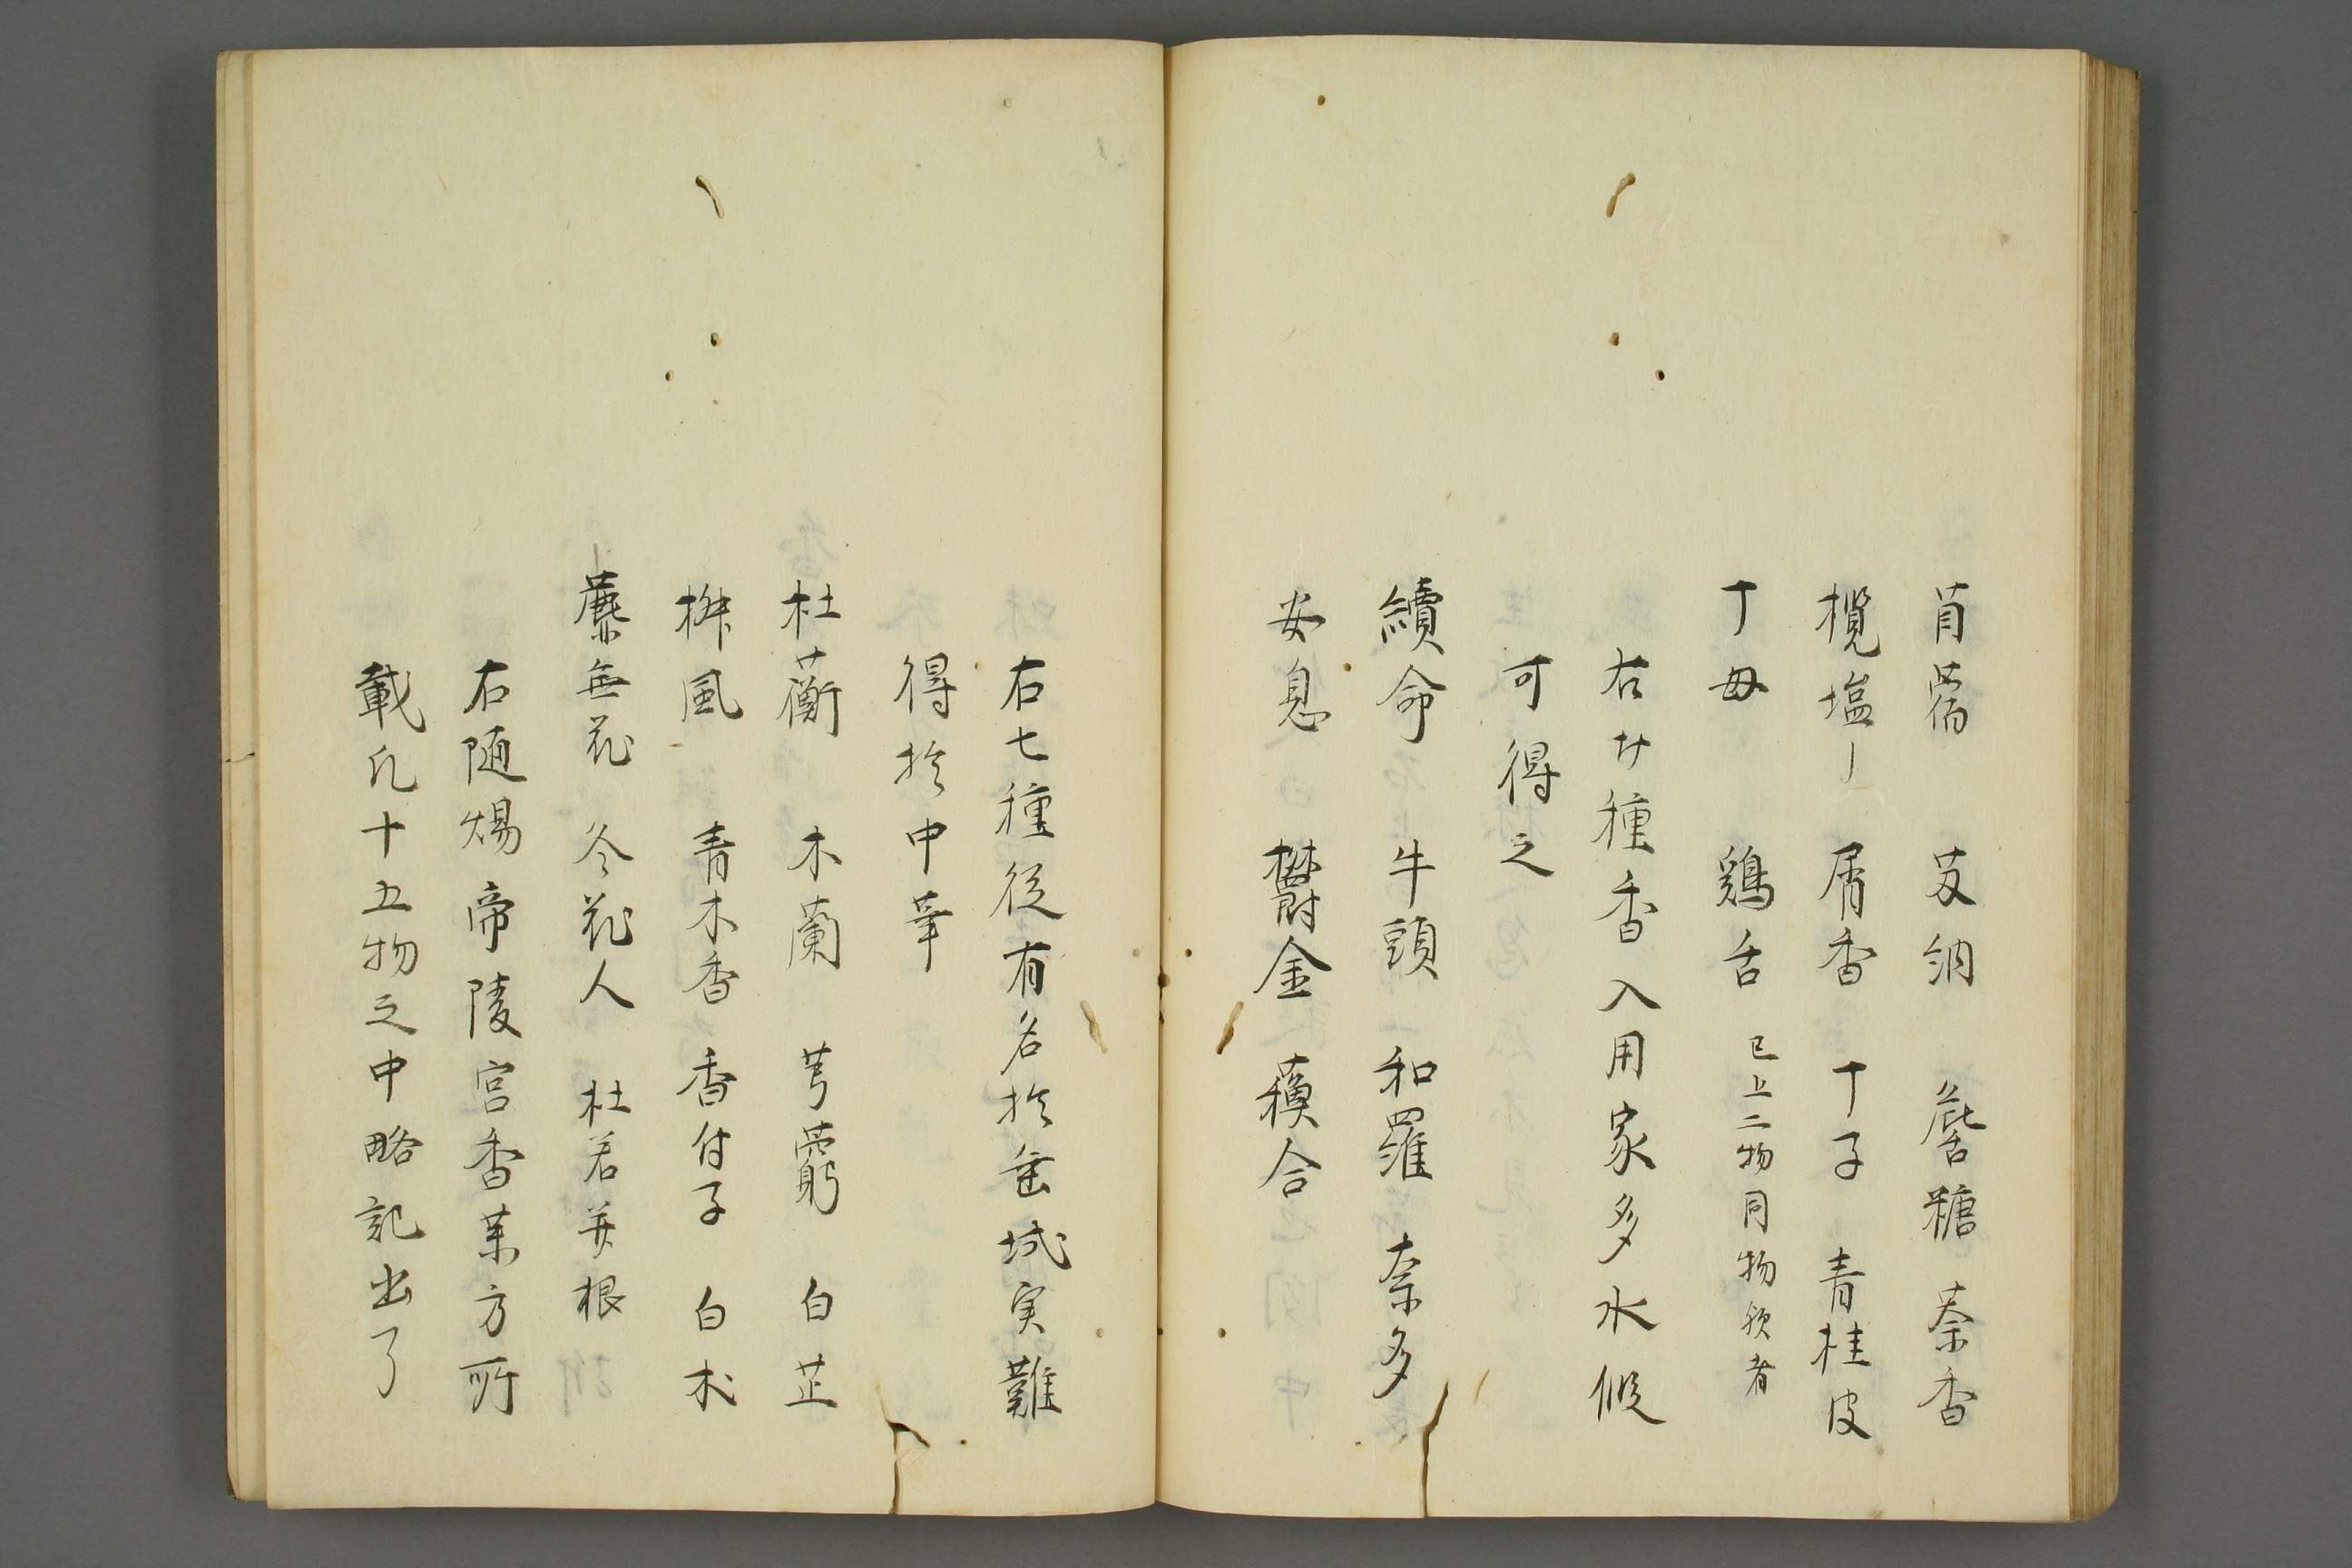 苜蓿 艾納 詹糖 奈香
欖塩 屑香 丁子 青桂皮
丁毋 鶏舌 已上二物同物欤者
右廿種香入用家多水假
可得之
續命 牛頭 和羅 奈多
安息 欝金 蘓合
右七種従有名於 城実難
得於中華
杜蘅 木蘭 芎藭 白芷
風 青木香 香付子 白朮
蘼蕪花 令花人 杜若并根
右随煬帝陵宮香薬方所
載凡十五物之中略記出了